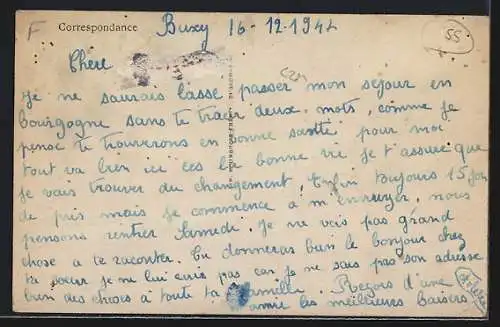 F
Correspondance
Buxy 16-12-1942
55
Chère
Je ne saurais lasse passer mon séjour en
bourgogne sans te tracer deux mots, comme je
pense te trouverons en bonne santé pour moi
tout va bien ici ces la bonne vie je t'assure que
je vais trouver du changement. Enfin toujours 15 jours
de pris mais je commence à m'ennuyer, nous
pensons rentrer Samedi. Je ne vois pas grand
chose a te raconter. Tu donneras bien le bonjour chez
ta soeur je ne lui cris pas car je ne sais pas son adresse
bien des choses à toute ta famille. Reçois d'une
amie les meilleurs baisers